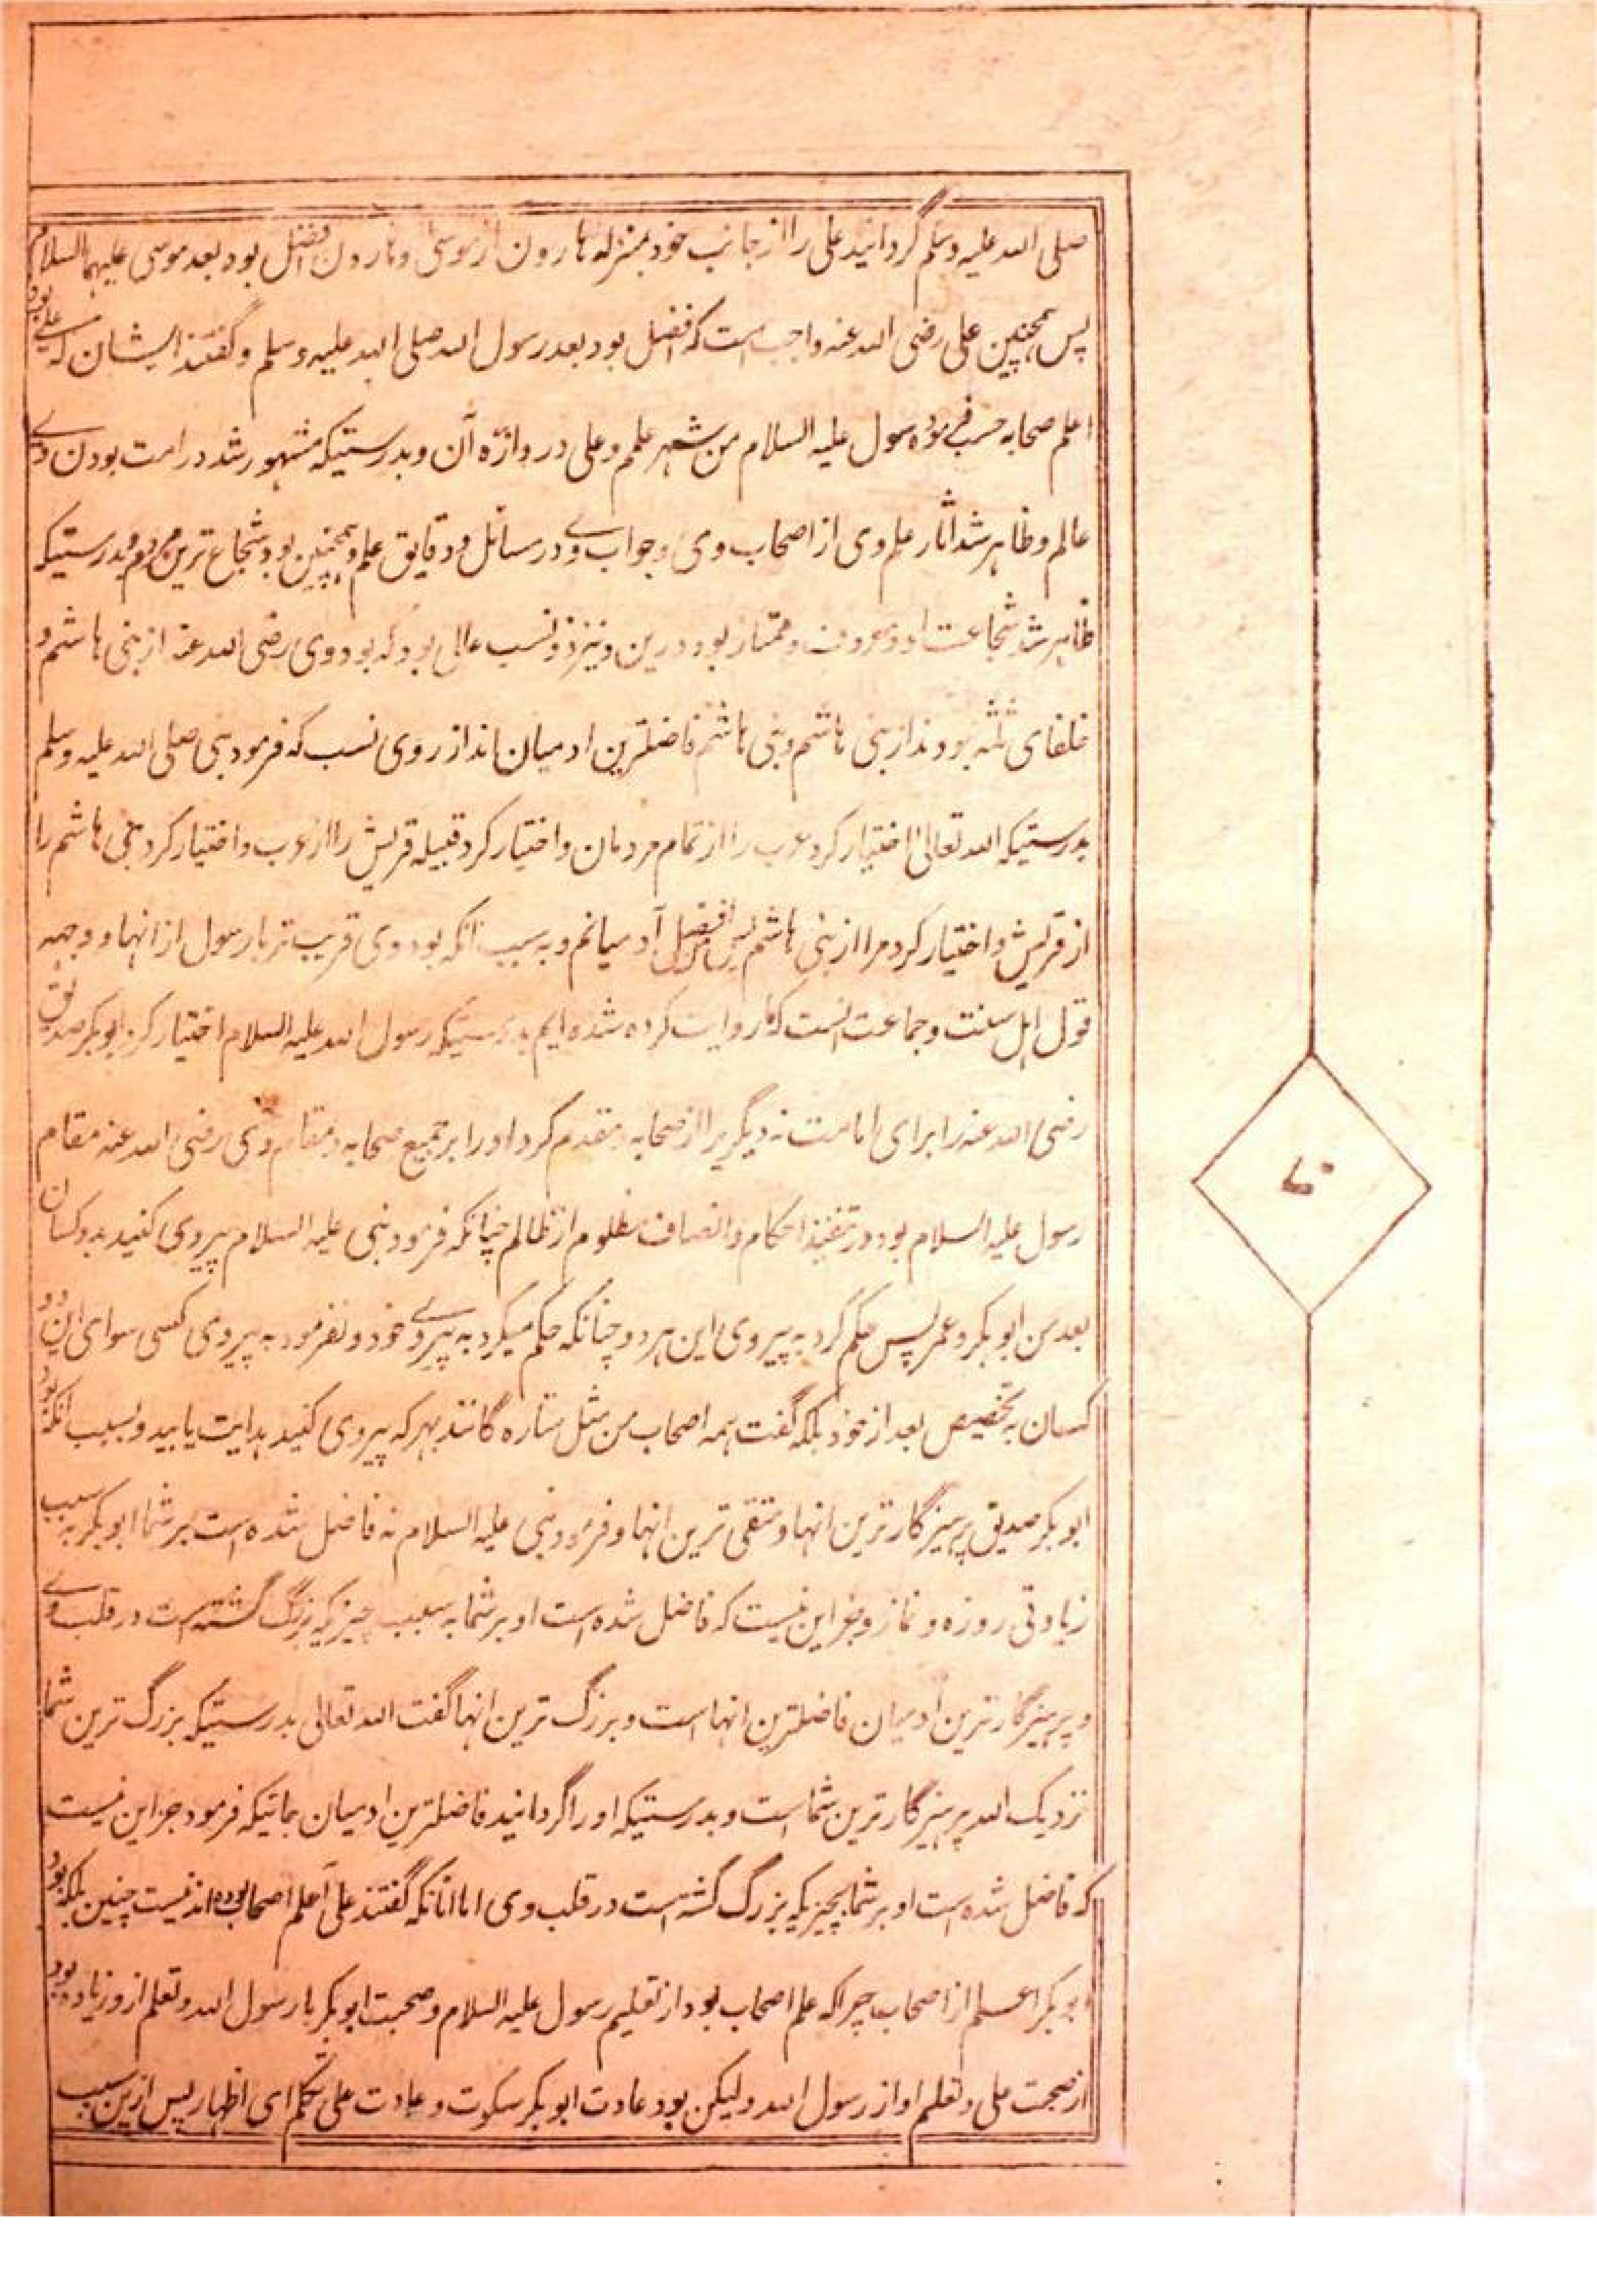 صلی الله علیه وسلم گردانید علی را از جانب خود بمنزله هارون از موسی و هارون افضل بود بعد موسی علیهما السلام
پس همچنین علی رضی الله عنه واجب است که افضل بود بعد رسول الله صلی الله علیه وسلم و گفتند ایشان که علی بود
اعلم صحابه حسب فرموده رسول علیه السلام من شهر علمم و علی دروازه آن و بدرستیکه مشهور شد در امت بودن وے
عالم و ظاهر شد آثار علم وی از اصحاب وی و جواب وے در مسائل و دقایق علم و همچنین بود شجاع ترین مردم و بدرستیکه
ظاهر شد شجاعت او و معروف و ممتاز بود درین و نیز ذو نسب عالی بود که بود وی رضی الله عنه از بنی هاشم و
خلفای ثلثه نبودند از بنی هاشم و بنی هاشم فاضلترین ادمیان اند از روی نسب که فرمود نبی صلی الله علیه وسلم
بدرستیکه الله تعالی اختیار کرد عرب را از تمام مردمان و اختیار کرد قبیله قریش را از عرب و اختیار کرد بنی هاشم را
از قریش و اختیار کرد مرا از بنی هاشم پس من افضل آدمیانم و به سبب انکه بود وی قریب تر با رسول از انها و وجهه
قول اهل سنت و جماعت انست که ما روایت کرده شده ایم بدرستیکه رسول الله علیه السلام اختیار کرد ابوبکر صدیق
رضی الله عنه را برای امامت نه دیگریرا از صحابه و مقدم کرد او را بر جمیع صحابه و مقام وی رضی الله عنه مقام
رسول علیه السلام بود در تنفیذ احکام و انصاف مظلوم از ظالم چنانکه فرمود نبی علیه السلام پیروی کنید بدو کسان
بعد من ابوبکر و عمر پس حکم کرد به پیروی این هر دو چنانکه حکم میکرد به پیروے خود و نفرمود به پیروی کسی سوای این دو
کسان به تخصیص بعد از خود بلکه گفت همه اصحاب من مثل ستاره گانند بهر که پیروی کنید هدایت یابید و بسبب انکه بود
ابوبکر صدیق پرهیزگار ترین انها و متقی ترین انها و فرمود نبی علیه السلام نه فاضل شده است بر شما ابوبکر به سبب
زیادتی روزه و نماز و جز این نیست که فاضل شده است او بر شما به سبب چیزیکه بزرگ گشته است در قلب وے
و پرهیزگار ترین آدمیان فاضلترین انها است و بزرگ ترین انها گفت الله تعالی بدرستیکه بزرگ ترین شما
نزدیک الله پرهیزگار ترین شما است و بدرستیکه او را گردانید فاضلترین ادمیان جائیکه فرمود جز این نیست
که فاضل شده است او بر شما بچیزیکه بزرگ گشته است در قلب وی اما انانکه گفتند علی اعلم اصحاب بوده اند نیست چنین بلکه بود
ابوبکر اعلم از اصحاب چرا که علم اصحاب بود از تعلیم رسول علیه السلام و صحبت ابوبکر با رسول الله و تعلم از و زیاده بود
از صحبت علی و تعلم او از رسول الله ولیکن بود عادت ابوبکر سکوت و عادت علی تکلم ای اظهار پس ازین سبب